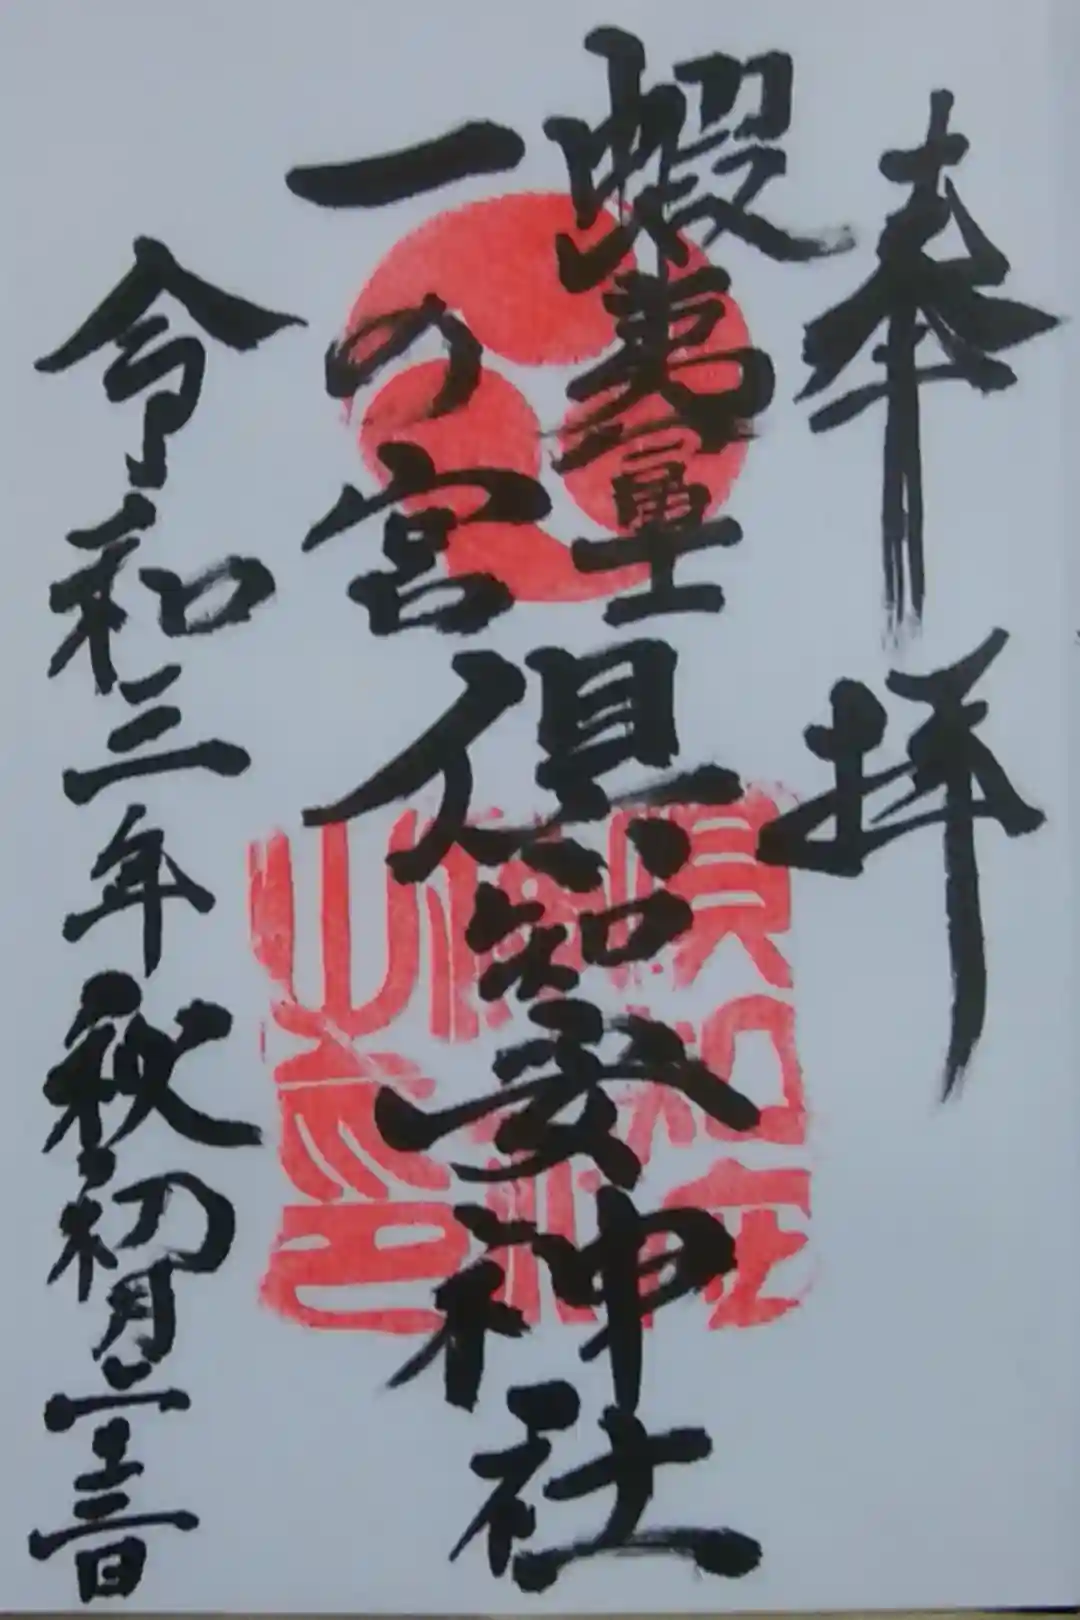 奉拝
蝦夷富士
倶知安神社
一の宮
令和三年秋初月二十三日